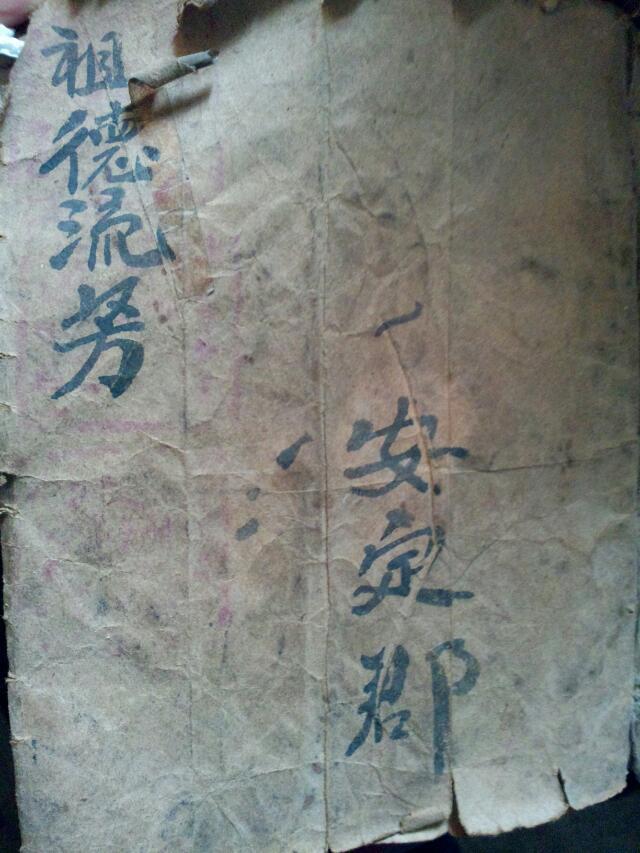 安定郡
祖德流芳